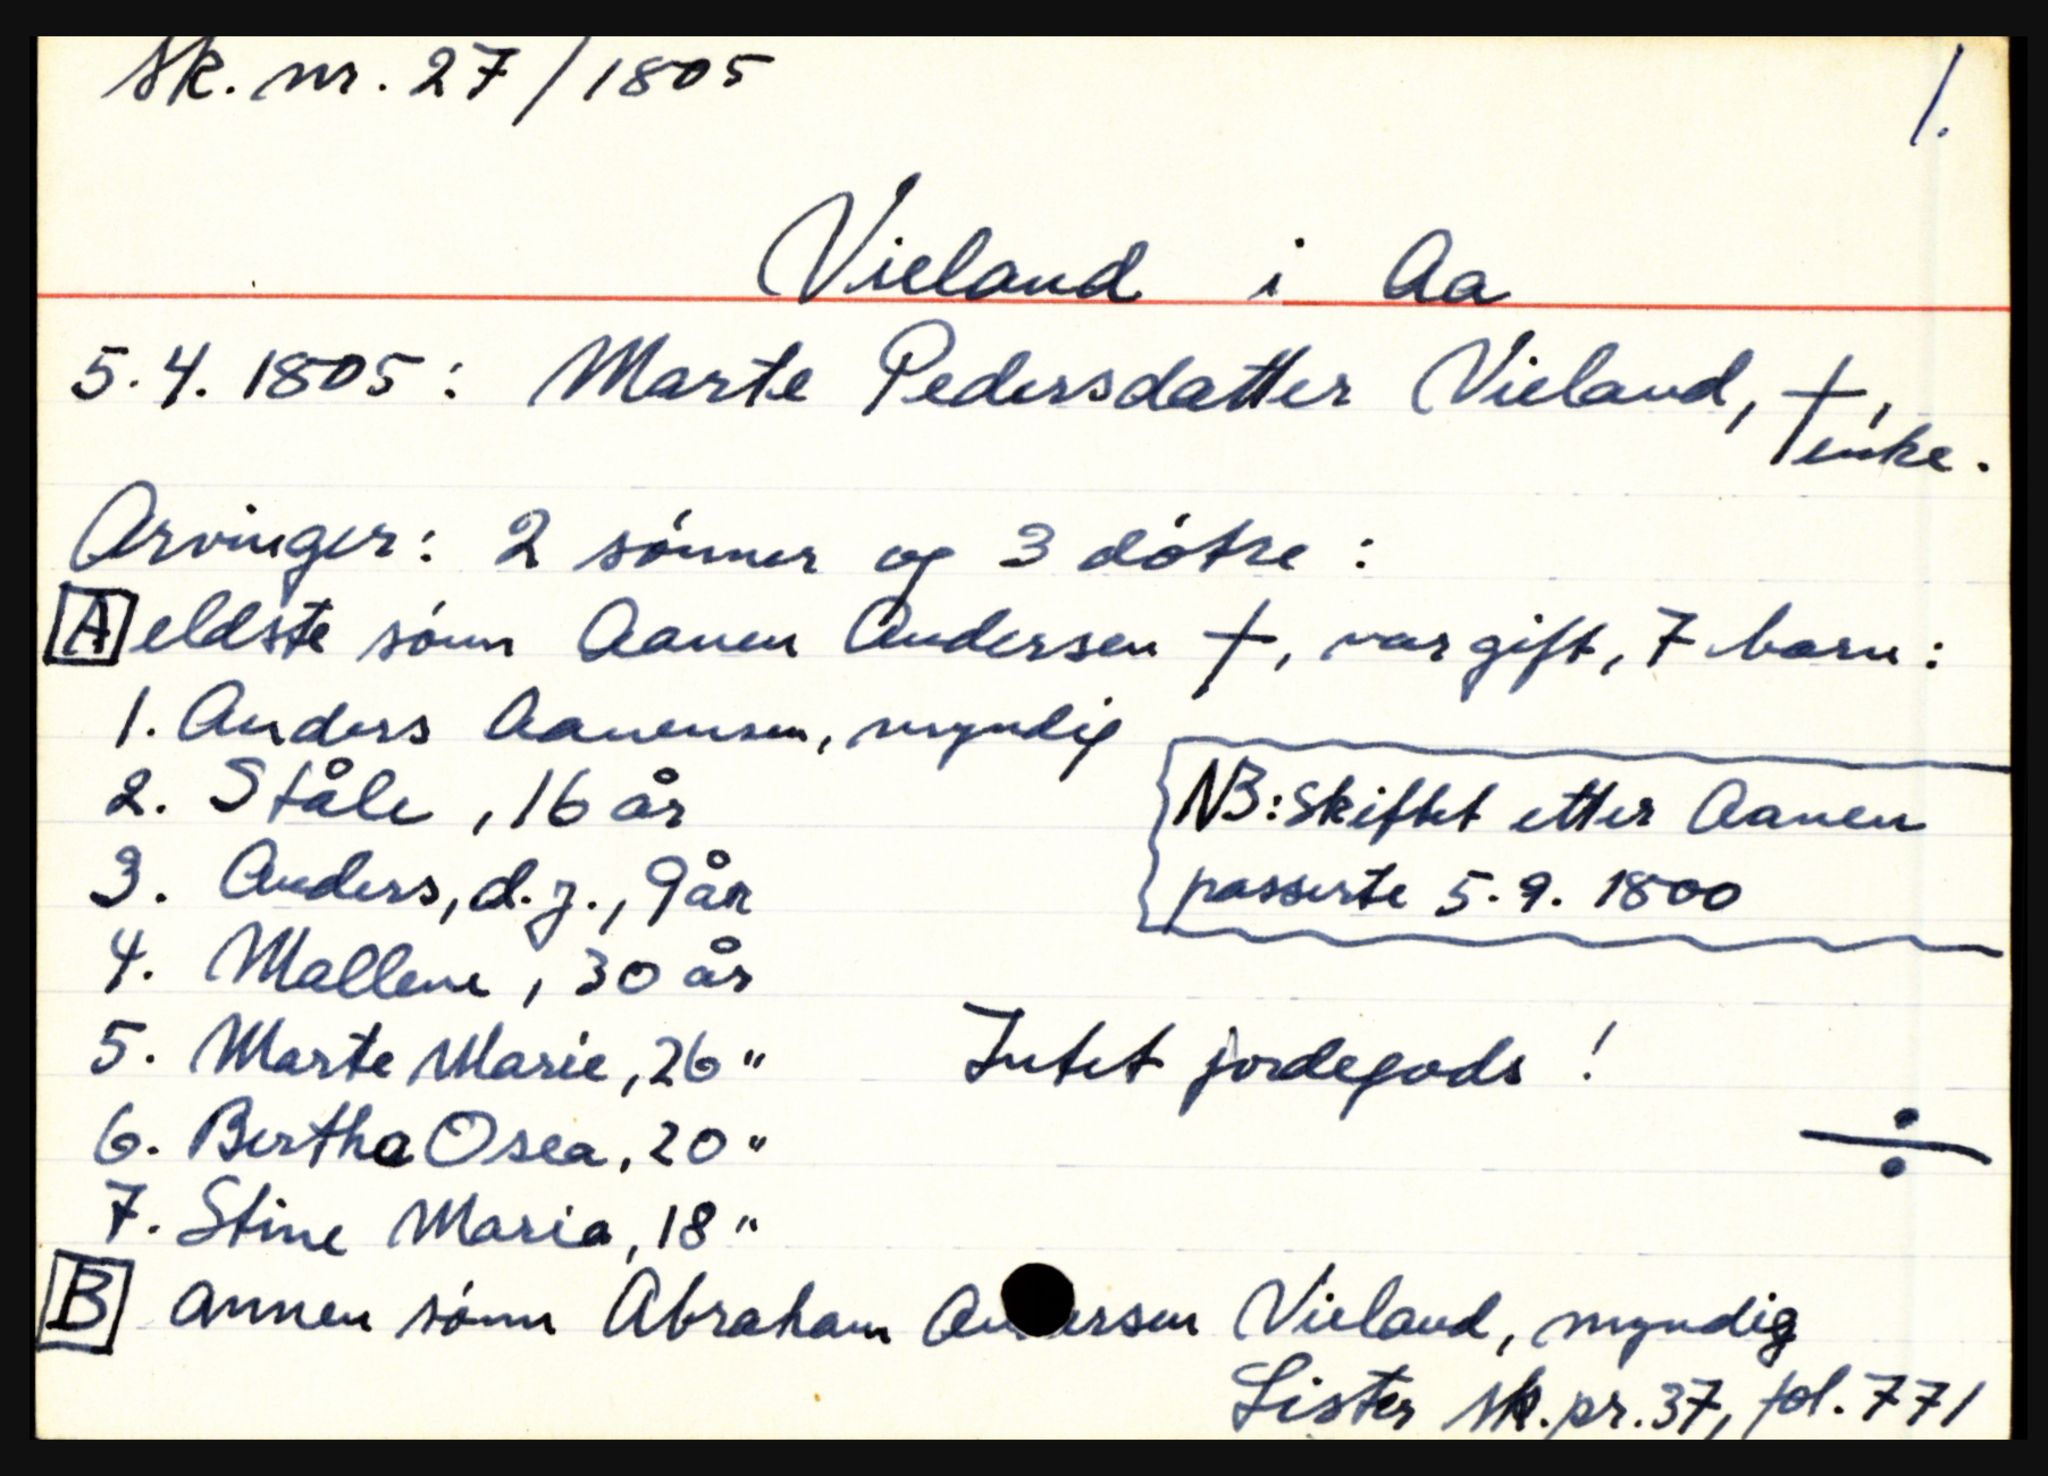 Sk. nr. 27/1805
1.
Vieland i Aa
5.4. 1805: Marte Pedersdatter Vieland, †,
enke.
Arvinger: 2 sónner og 3 dótre:
A eldste sónn Aanen Andersen †, var gift, 7 barn:
1. Anders Aanensen, myndig
2. Ståle, 16 år
3. Anders, d.y., 9 år
4. Mallene, 30 år
5. Marte Marie, 26 "
6. Bertha Osea, 20 "
7. Stine Maria, 18 "
NB: Skiftet etter Aanen
passerte 5.9. 1800
Intet jordegods!
÷
B annen sónn Abraham Andersen Vieland, myndig
Lister sk.pr. 37, fol. 771